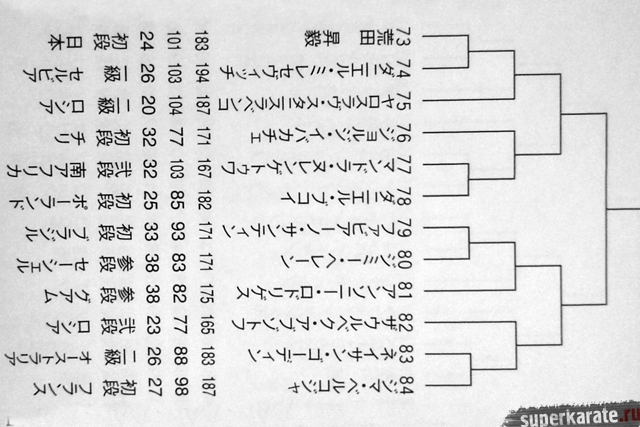 73 荒田 昇毅 183 101 24 初段 日本
74 ダニエル・ミレセヴィッチ 194 103 26 一級 セルビア
75 ヤロスラヴ・スタニスラベンコ 187 104 20 二級 ロシア
76 ジョルジ・イバカチェ 171 77 32 初段 チリ
77 マンドラ・ヌレンゲトゥワ 167 103 32 弐段 南アフリカ
78 ダニエル・ブコイ 182 85 25 初段 ポーランド
79 ファビアーノ・サンティン 171 93 33 初段 ブラジル
80 ジミー・ベレーン 171 83 38 参段 セーシェル
81 アンソニー・ロドリゲス 175 82 38 参段 グアム
82 ザウルベク・ 165 77 23 弐段 ロシア
83 ネイサン・ゴーディン 183 88 26 二級 オーストラリア
84 ジマ・ベルコジャ 187 98 27 初段 フランス
superkarate.ru